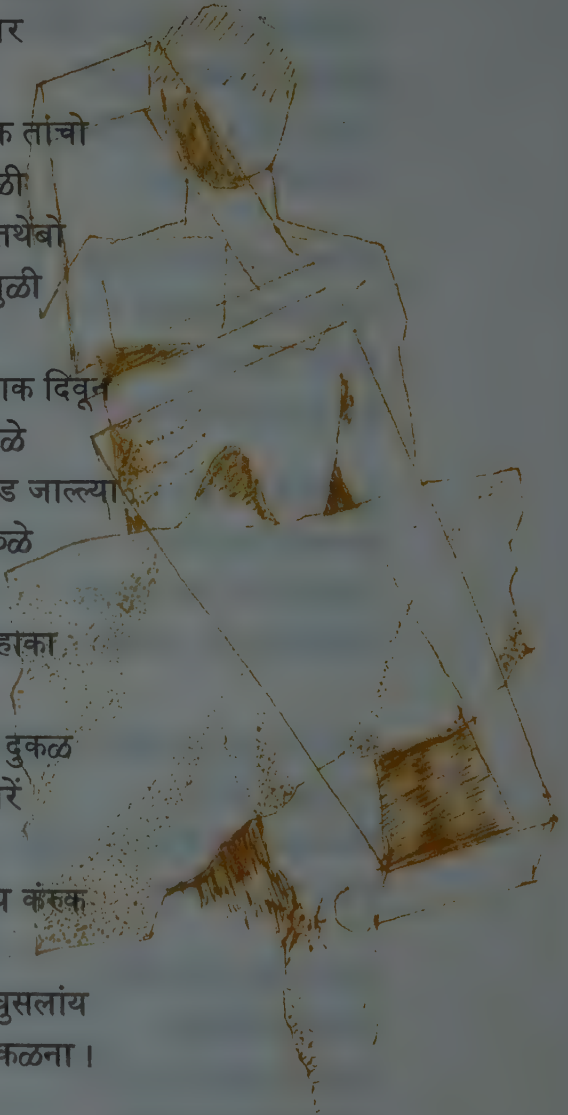 ार
क तांचो
ळी
तथेंबो
ुळी
ाक दिवून
ळे
ड जाल्ल्या
ळे
हांका
दुकळ
रें
य करुंक
घुसलांय
कळना ।